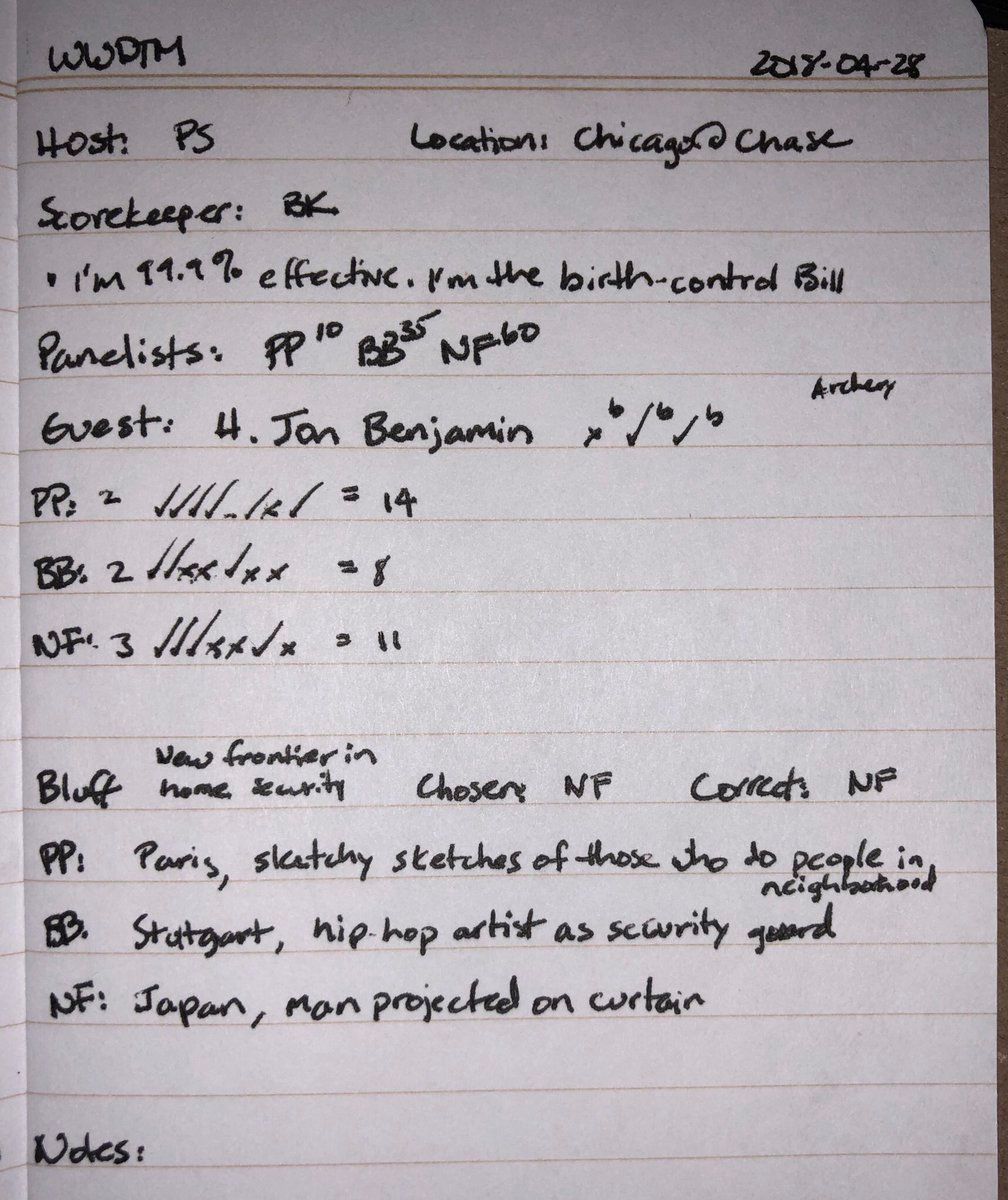 WWDTM 2018-04-28
Host: PS Location: Chicago @ Chase
Scorekeeper: BK
• I'm 99.9% effective. I'm the birth-control Bill
Panelists: PP 10 BB 35 NF 60
Archery
Guest: H. Jon Benjamin x b ✓ b ✓ b
PP: 2 ✓✓✓✓-✓x✓ = 14
BB: 2 ✓✓xx✓xx = 8
NF: 3 ✓✓✓xx✓x = 11
New frontier in
Bluff home security Chosen: NF Correct: NF
PP: Paris, sketchy sketches of those who do people in
neighborhood
BB. Stuttgart, hip-hop artist as security guard
NF: Japan, man projected on curtain
Notes: